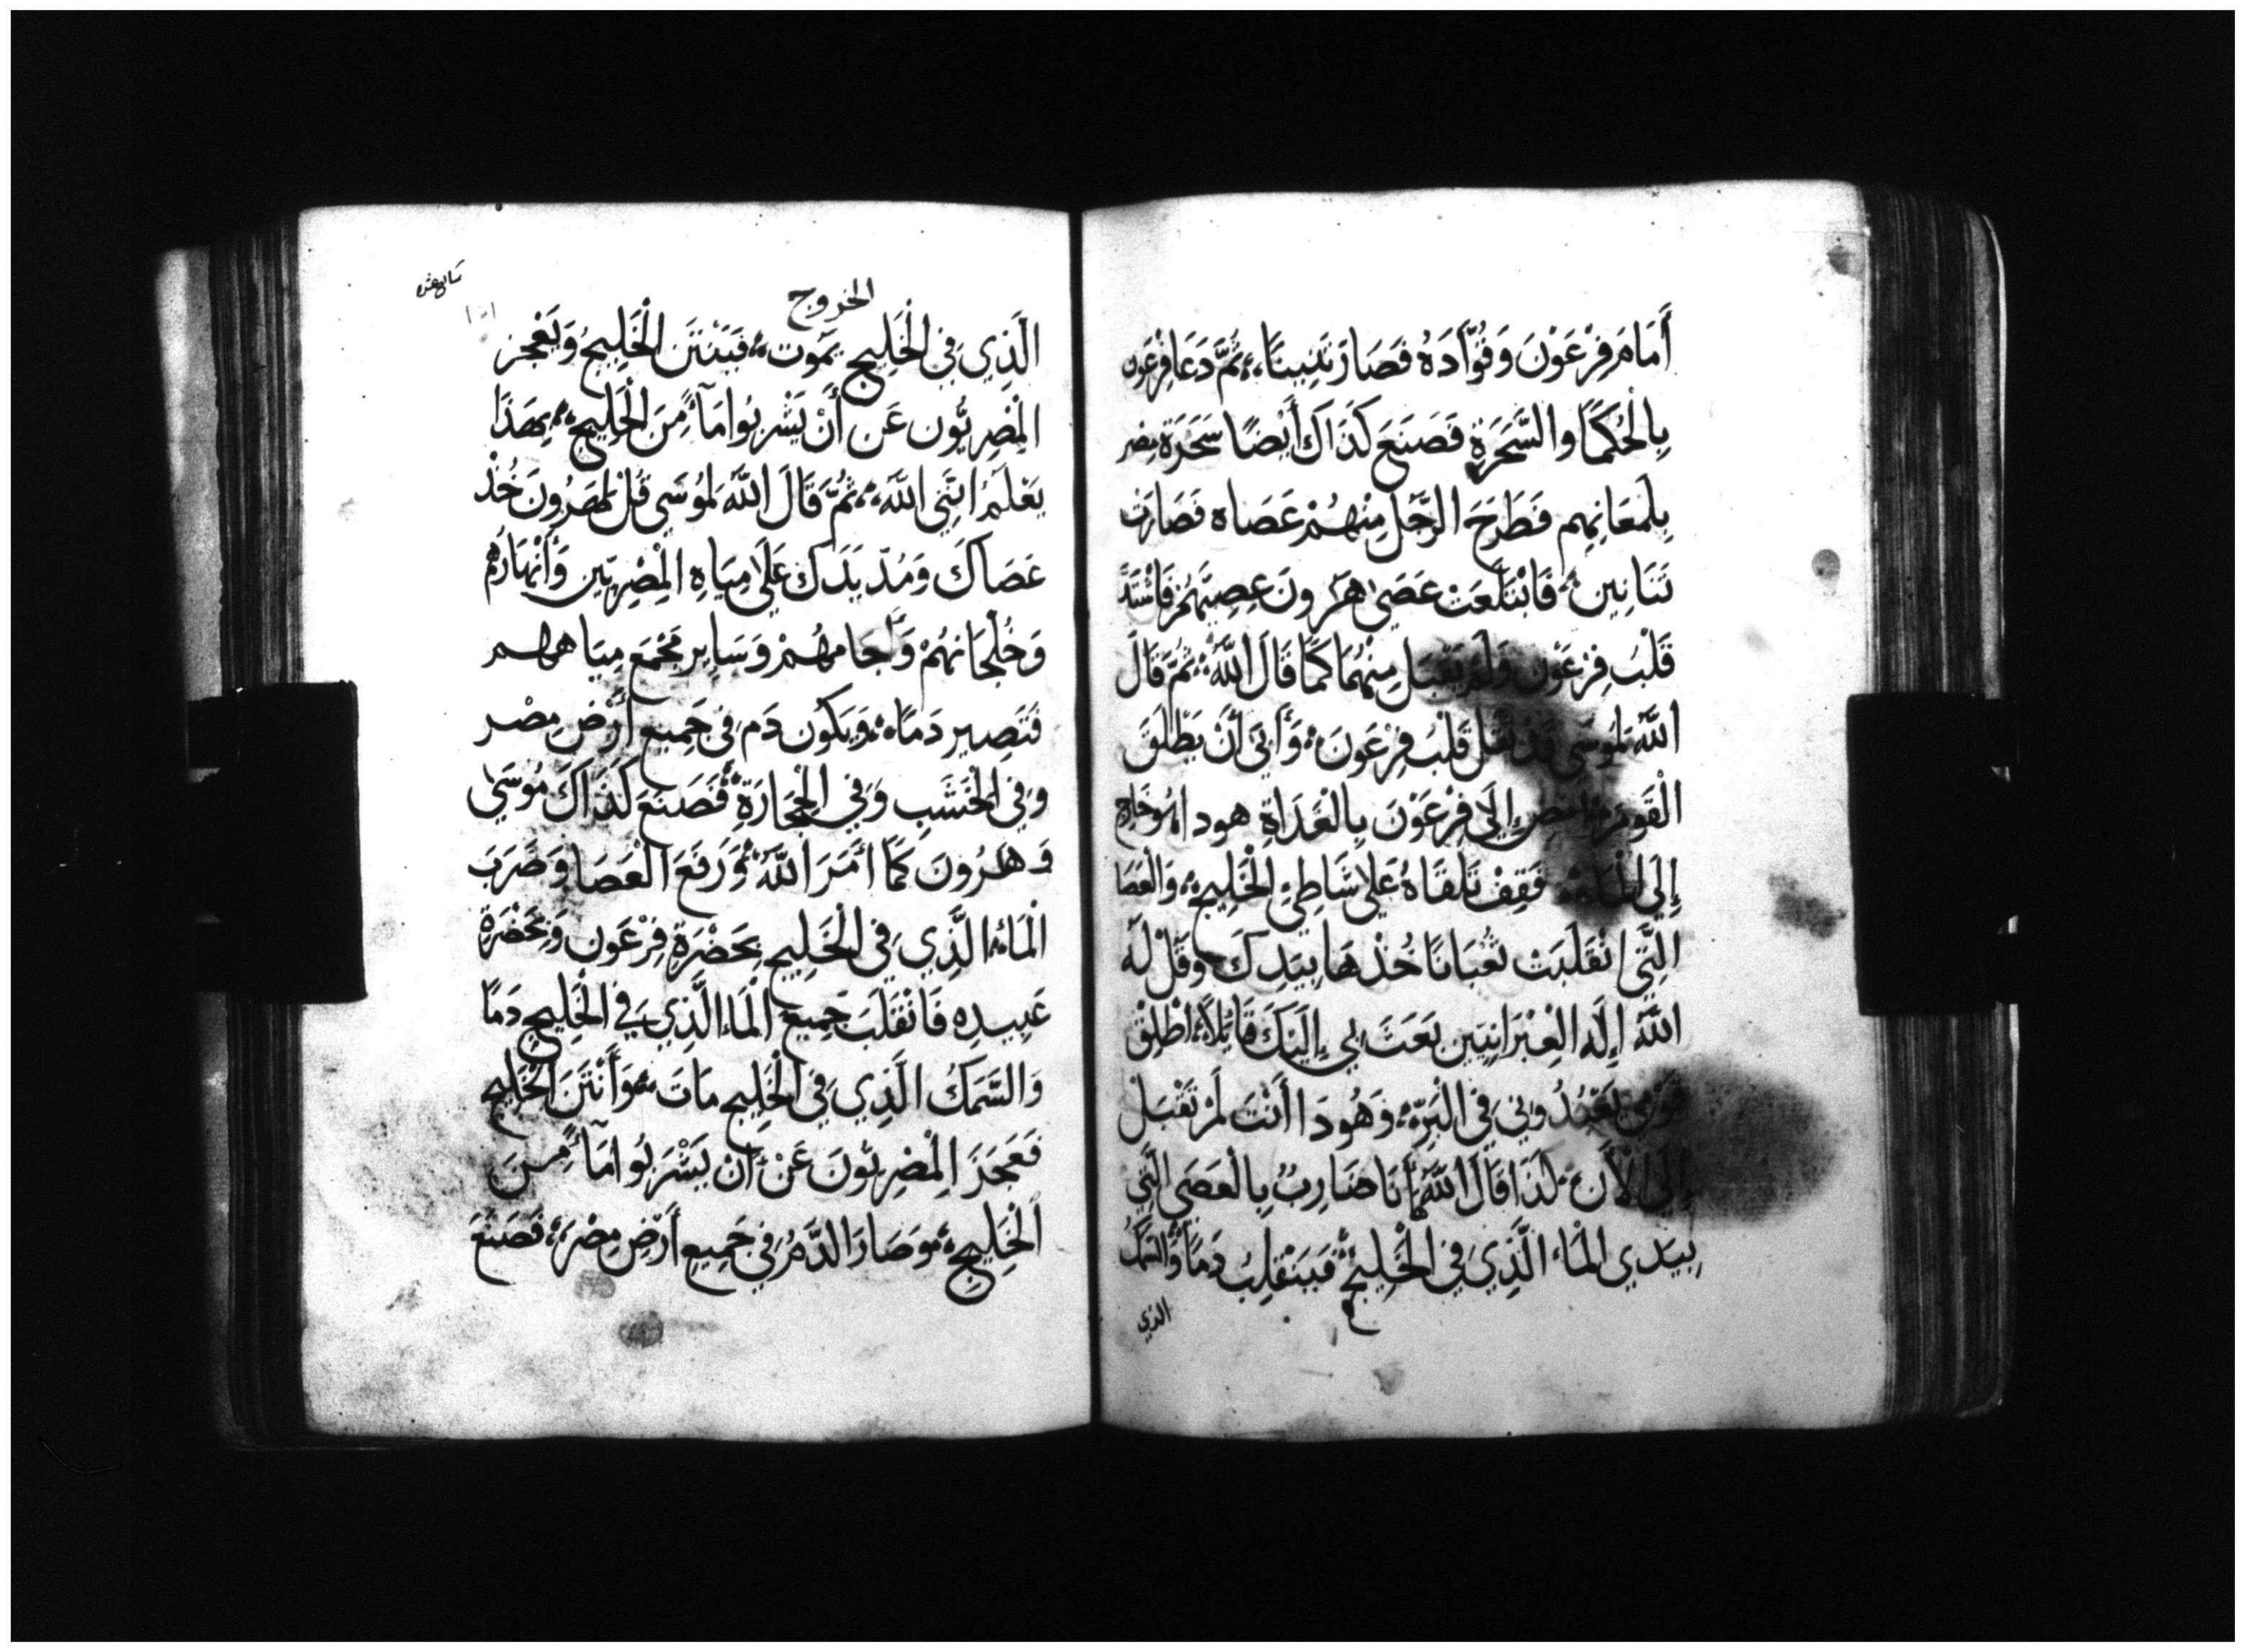 أَمَامَ فِرْعَوْنَ وَقُوَّادَهُ فَصَارَ تَنِينًا، ثُمَّ دَعَا فِرْعَون
بِالْحُكَمَا والسَّحَرَةِ فَصَنَعَ كَذَاكَ أَيْضًا سَحَرَة مِصر
بِلَمعَانِهِم فَطَرَحَ الرَّجُل مِنْهُمْ عَصَاه فَصَارَت
تَنَانِين، فَابْتَلَعَتْ عَصَى هَرُونَ عِصِيَّهُمْ فَاشْتَدَّ
قَلْبَ فِرْعَوْن وَلَمْ يَقْبَل مِنْهُمَا كَمَا قَالَ اللَّهُ ثُمَّ قَالَ
اللَّهُ لِمُوسَى قَدْ ثَقُلَ قَلْبَ فِرْعَوْنَ، وَأَبَى أَنْ يَطْلَقَ
الْقَوم امض إِلَى فِرْعَوْنَ بِالْغَدَاةِ هود اهُو خَارِج
إِلَى الْمَاء، فَقِفْ تَلَقَّاهُ عَلَى شَاطِئِ الْخَلِيج، وَالْعَصَا
الَّتِي انْقَلَبَتْ ثُعْبَانًا خُذْهَا بِيَدِكَ وَقُلْ لَه
اللَّهُ إِلَه الْعِبْرَانِيين بَعَثَ بِي إِلَيْكَ قَايْلاً اطْلِقْ
قَوْمِي يَعْبُدُونِي فِي الْبَرِّه، وَهُودَا أَنْتَ لَمْ تَقْبَلْ
إِلَى الْأَن، لَذَا قَالَ اللَّهُ أَنَا ضَارِبُ بِالْعَصَى الَّتِي
بِيَدي الْمَاء الَّذِي فِي الْخَلِيج، فَيَنْقَلِبُ دَمًا وَالسَّمَكُ
الذي
الخروج
الَّذِي فِي الْخَلِيج يَمُوت، فَيَنْتَن الْخَلِيجُ وَيَعْجز
الْمِصْرِيُّون عَن أَنْ يَشْرَبُوا مَآءً مِنَ الْخَلِيج، بِهَذَا
يَعْلَمُ انَّنِي اللَّهَ، ثُمَّ قَالَ اللَّهُ لِمُوسَى قُلْ لِهَرُونَ خُذْ
عَصَاكَ وَمُدّ يَدَكَ عَلَى مِيَاهِ الْمِصْرِيِّين وَأَنْهَارَهُم
وَخُلْجَانهُمْ وَآجَامهُمْ وَسَايِر مَجْمَع مِيَاههم
فَتَصِير دَمًا، وَيَكُون دَم فِي جَمِيع أَرْض مِصْر
وَفِي الْخَشَبِ وَفِي الْحِجَارَةِ، فَصَنَعَ كَذَاكَ مُوسَى
وَهَرُونَ كَمَا أَمَرَ اللَّهُ وَرَفَعَ الْعَصَا وَضَرَبَ
الْمَاءُ الَّذِي فِي الْخَلِيج بِحَضْرَة فِرْعَون وَبِحَضْرَة
عَبِيدِه فَانْقَلَبَ جَمِيعَ الْمَاءِ الَّذِي فِي الْخَلِيج دَمًا
وَالسَّمَكُ الَّذِي فِي الْخَلِيج مَاتَ، وَأَنْتَنَ الْخَلِيج
فَعَجَزَ الْمِصْرِيُّونَ عَنْ أَنْ يَشْرَبُوا مَآءً مِنَ
الْخَلِيجِ، وَصَارَ الدَّمُ فِي جَمِيع أَرْض مِصْرَ، فَصَنَعَ